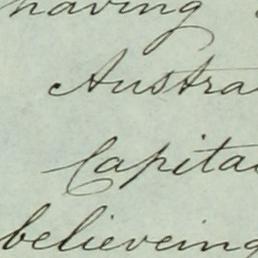 having
Austra
Capita
believeing